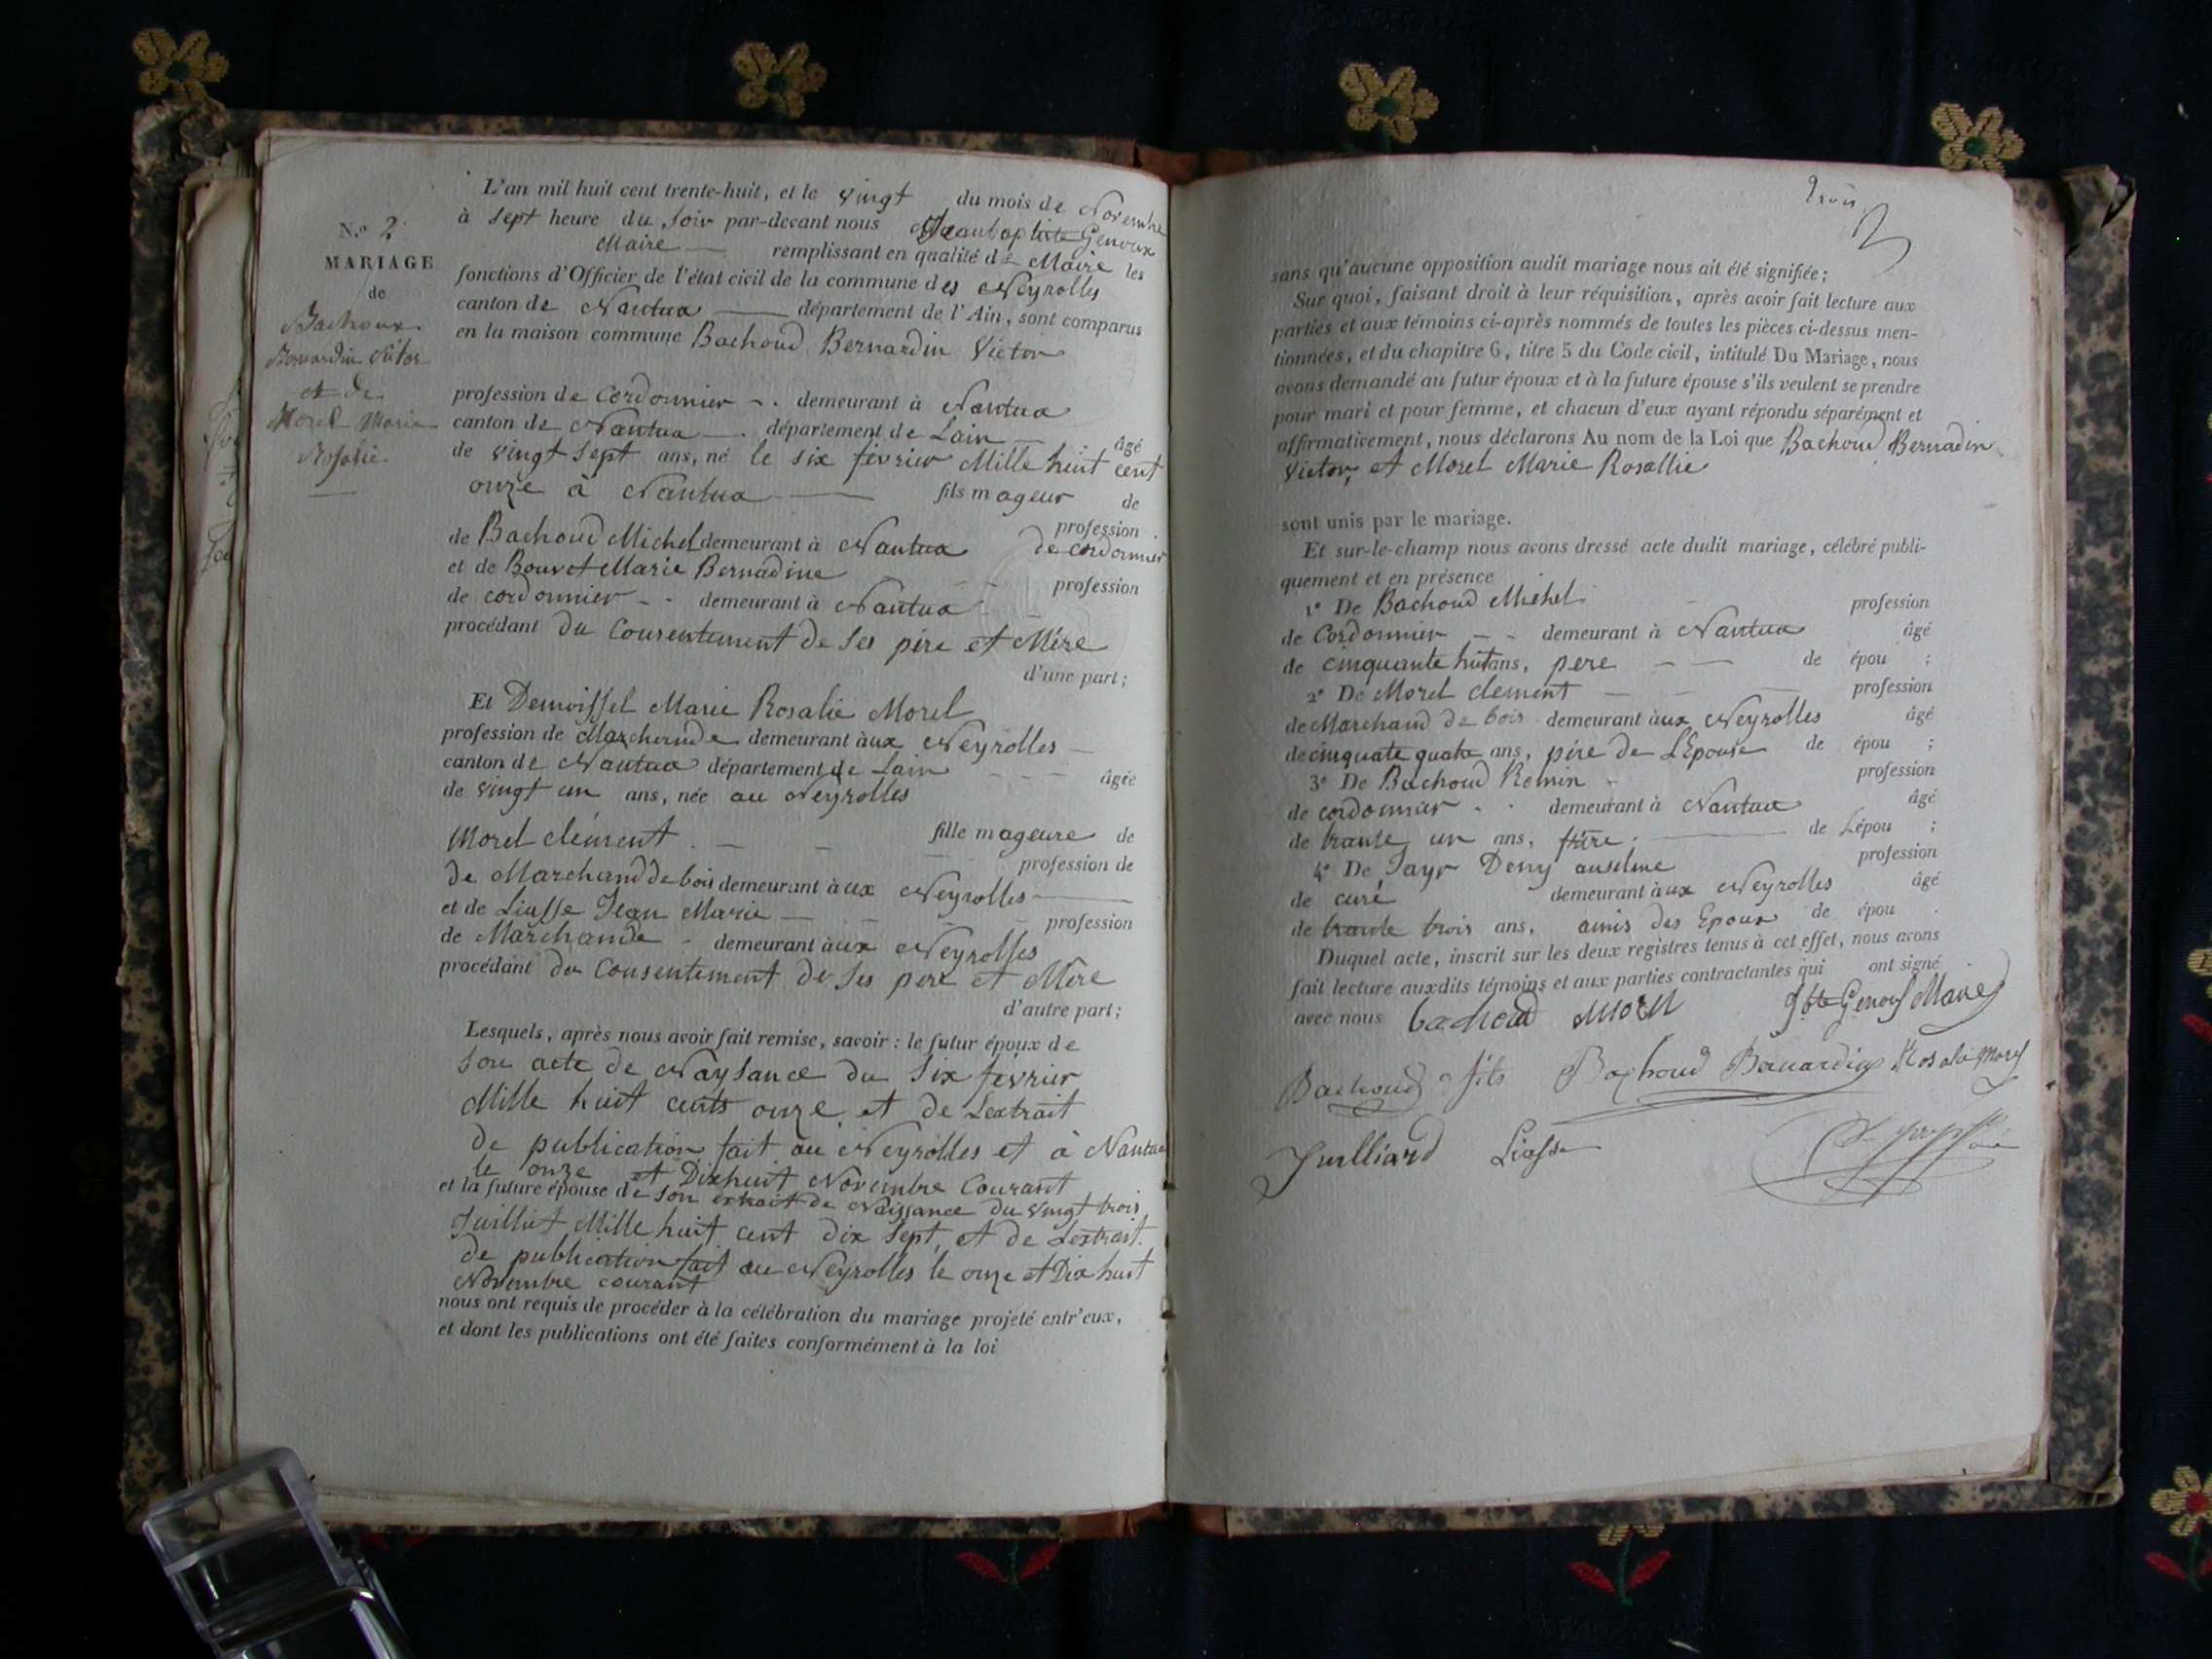 N.o 2
MARIAGE
de
Bachoux
Bernardin Victor
et de
Morel Marie
Rosalie
L'an mil huit cent trente-huit, et le vingt du mois de Novembre
à sept heure du soir par-devant nous Jeanbaptiste Genoux
Maire remplissant en qualité de Maire les
fonctions d'Officier de l'état civil de la commune des Neyrolles
canton de Nantua département de l'Ain, sont comparus
en la maison commune Bachoud Bernardin Victor
profession de Cordonnier demeurant à Nantua
canton de Nantua département de Lain âgé
de vingt sept ans, né le six février Mille huit cent
onze à Nantua fils mageur de
profession
de Bachoud Michel demeurant à Nantua de cordonnier
et de Bouvet Marie Bernadine
profession
de cordonnier demeurant à Nantua
procédant du Consentement de ses père et Mère
d'une part;
Et Demoissel Marie Rosalie Morel
profession de Marchande demeurant àux Neyrolles
canton de Nantua département de Lain âgée
de vingt un ans, née au Neyrolles
Morel clément fille mageure de
profession de
de Marchand de bois demeurant àux Neyrolles
et de Liasse Jean Marie profession
de Marchande demeurant àux Neyrolles
procédant du Consentement de ses père et Mère
d'autre part;
Lesquels, après nous avoir fait remise, savoir: le futur époux de
son acte de Naysance du six février
Mille huit cents onze, et de Lextrait
de publication fait au Neyrolles et à Nantua
le onze et Dixhuit Novembre Courant
et la future épouse de son extrait de Naissance du vingt trois
Juilliet Mille huit cent dix sept, et de Lextrait
de publication fait au Neyrolles le onze et Dix huit
Novembre courant
nous ont requis de procéder à la célébration du mariage projeté entr'eux,
et dont les publications ont été faites conformément à la loi
trois
sans qu'aucune opposition audit mariage nous ait été signifiée;
Sur quoi, faisant droit à leur réquisition, après avoir fait lecture aux
parties et aux témoins ci-après nommés de toutes les pièces ci-dessus men-
tionnées, et du chapitre 6, titre 5 du Code civil, intitulé Du Mariage, nous
avons demandé au futur époux et à la future épouse s'ils veulent se prendre
pour mari et pour femme, et chacun d'eux ayant répondu séparément et
affirmativement, nous déclarons Au nom de la Loi que Bachoud Bernadin
Victor, et Morel Marie Rosallie
sont unis par le mariage.
Et sur-le-champ nous avons dressé acte dudit mariage, célébré publi-
quement et en présence
1o De Bachoud Michel profession
de Cordonnier demeurant à Nantua âgé
de cinquante huit ans, pere de épou ;
2o De Morel clement profession
de Marchand de bois demeurant àux Neyrolles âgé
de cinquate quatre ans, père de L'Epouse de épou ;
3o De Bachoud Romin profession
de cordonnier demeurant à Nantua âgé
de trante un ans, frère de Lépou ;
4o De Jayr Deny anselme profession
de curé demeurant àux Neyrolles âgé
de trante trois ans, amis des Epoux de épou .
Duquel acte, inscrit sur les deux registres tenus à cet effet, nous avons
fait lecture auxdits témoins et aux parties contractantes qui ont signé
avec nous bachoud Morel Jbte Genoux Maire
Bachoud fils Bachoud Bernardin Rosalie Morel
Juilliard Liasse